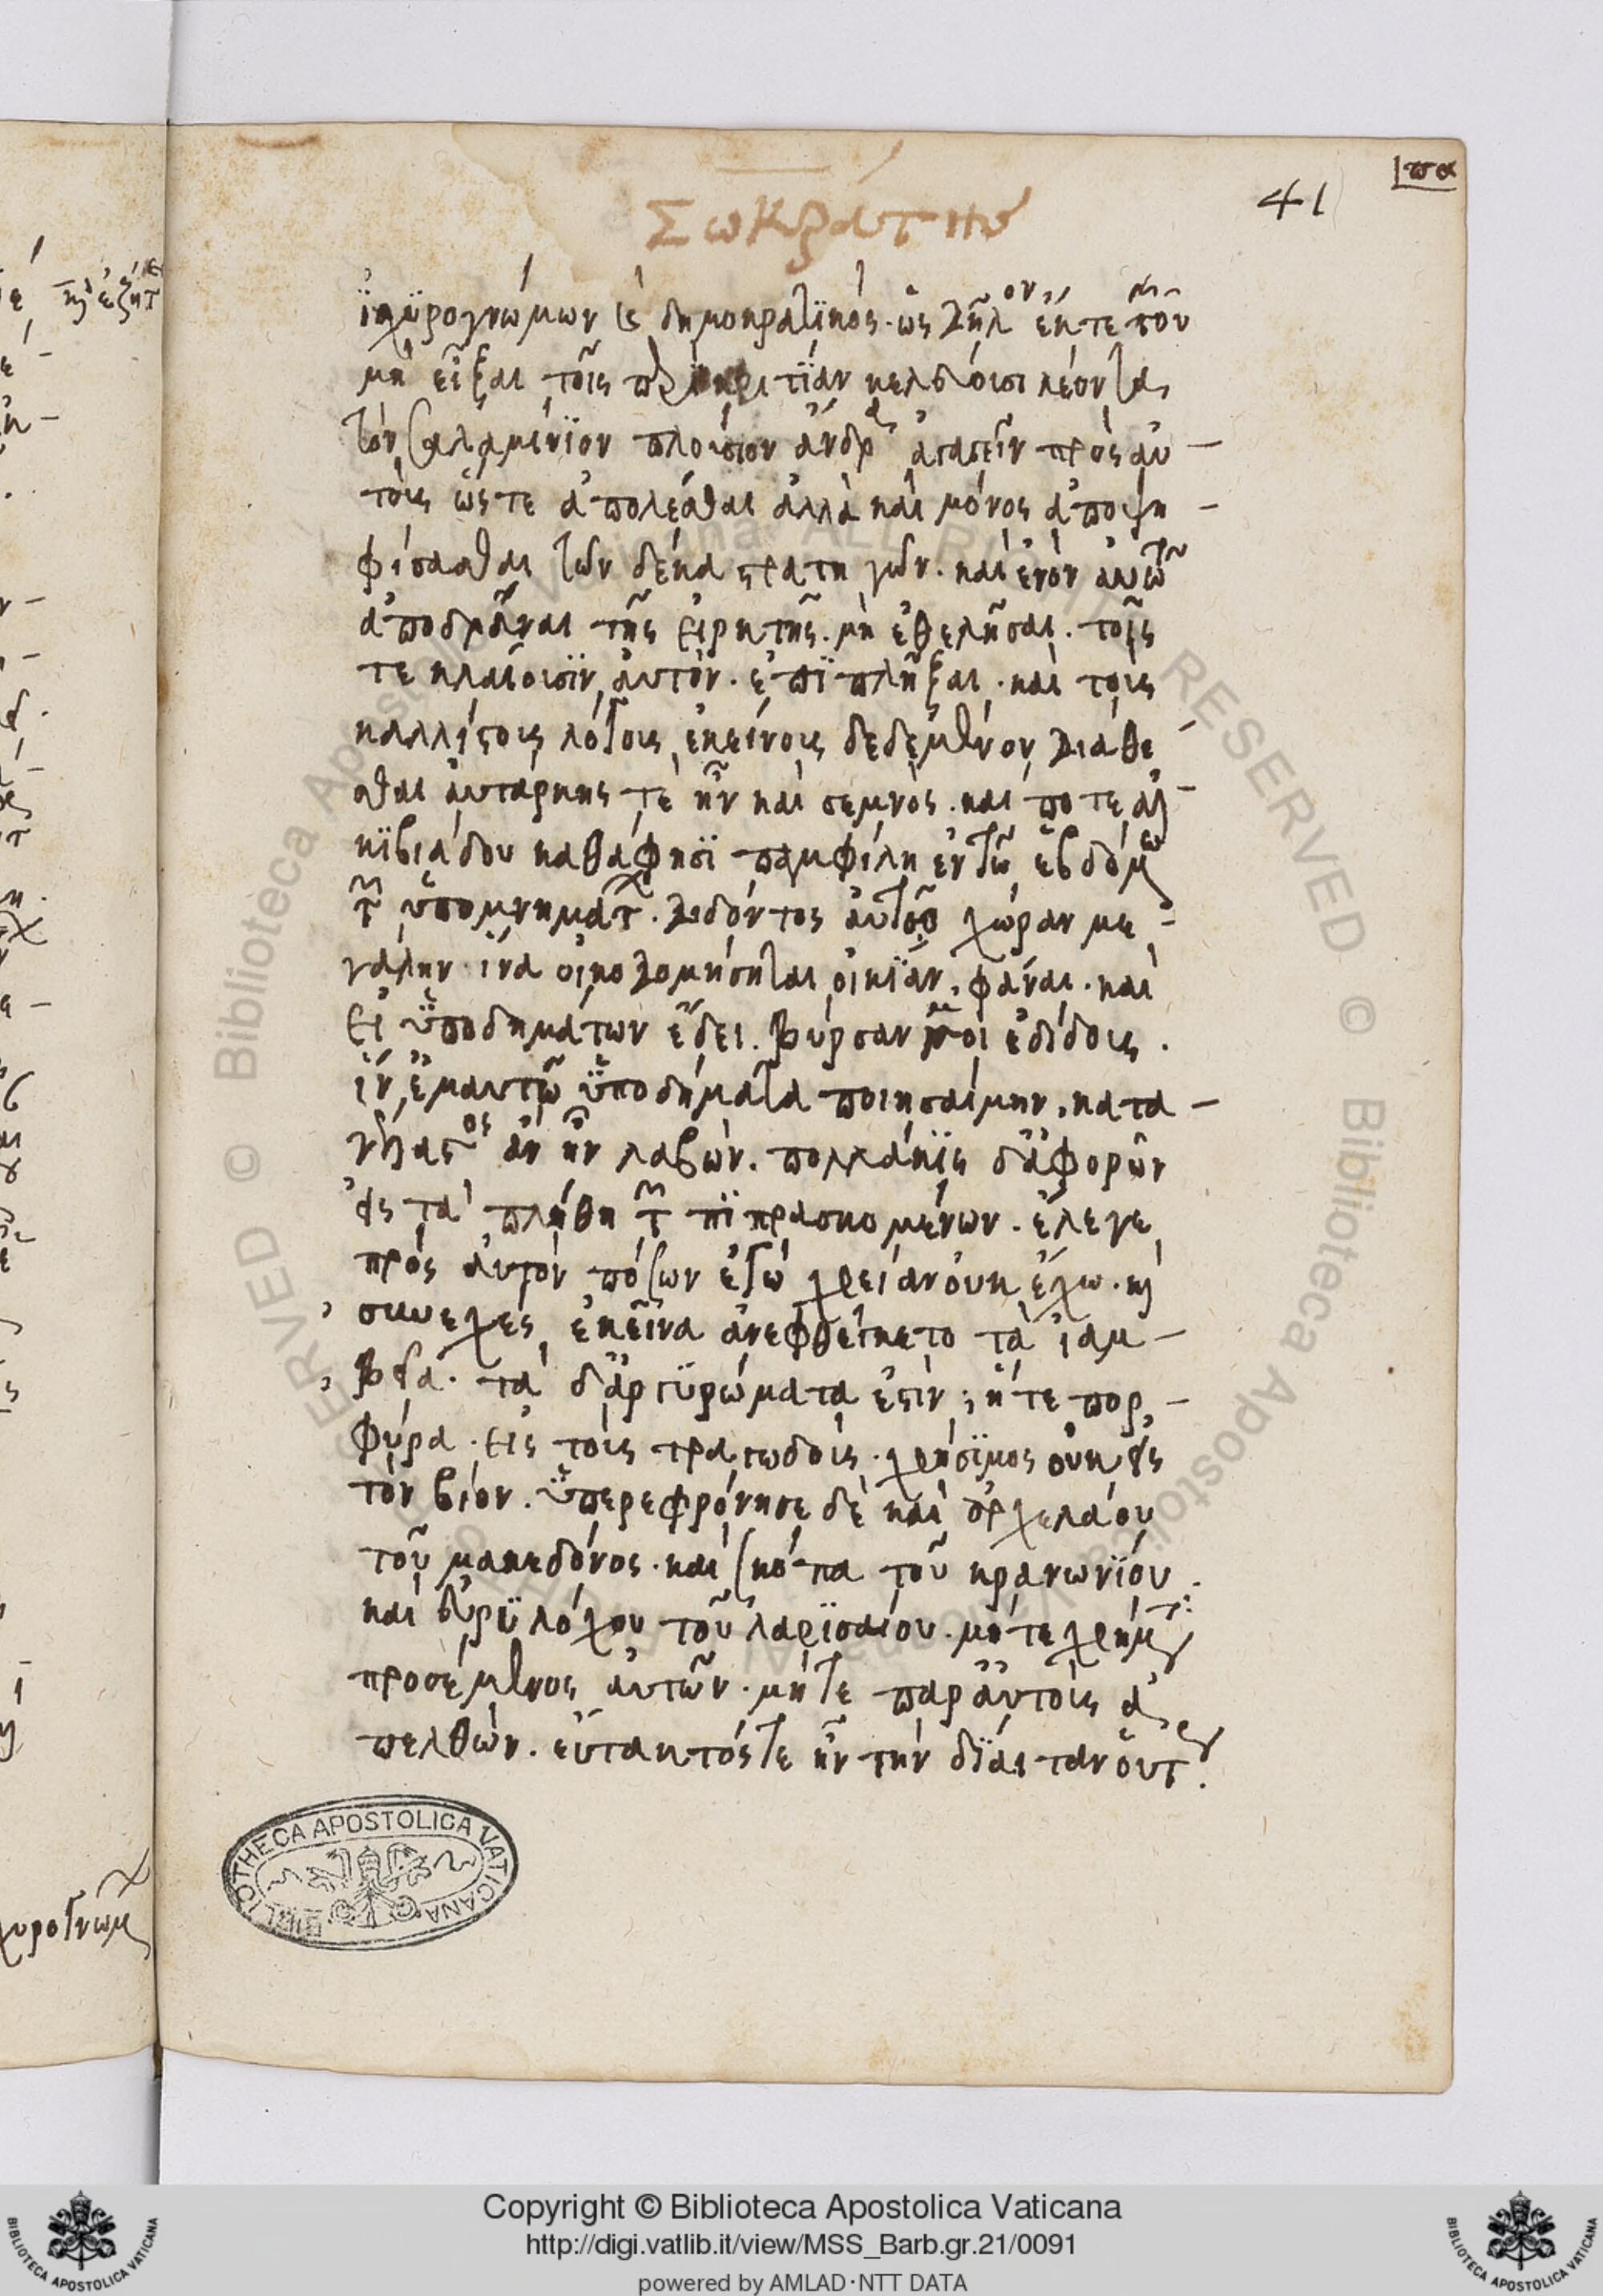 πα
41
Σωκράτην
ἰσχϋρογνώμων καὶ δημοκρατϊκός. ὡς δῆλον ἔκτε τοῦ
μὴ εἶξαι τοῖς περὶ κριτΐαν κελεύουσι λέοντα
τὸν σαλαμίνϊον πλούσιον ἄνδρα ἀγαγεῖν πρὸς αὐ-
τοὺς ὥστε ἀπολέσθαι ἀλλὰ καὶ μόνος ἀποψη-
φίσασθαι τῶν δέκα στρατηγῶν. καὶ ἐνὸν αὐτῶ
ἀποδρᾶναι τῆς εἱρκτῆς. μὴ ἐθελῆσαι. τοῖς
τε κλαίουσϊν αὐτὸν. ἐπϊπλῆξαι. καὶ τοὺς
καλλίστους λόγους ἐκείνους δεδεμένον διαθέ
σθαι αὐτάρκης τὲ ἦν καὶ σεμνός. καί ποτε ἀλ-
κϊβιάδου καθά φησϊ παμφίλη ἐν τῶ ἑβδόμω
τῶν ὑπομνημάτων. διδόντος αὐτῶ χώραν με-
γάλην. ἵνα οἰκοδομήσηται οἰκΐαν, φάναι. καὶ
εἰ ὑποδημάτων ἔδει. βύρσαν μοι ἐδίδους.
ἵν ἐμαυτῶ ὑποδήματα ποιησαίμην, κατα-
γέλαστος ἂν ἦν λαβών. πολλάκϊς δ ἀφορῶν
εἰς τὰ πλήθη τῶν πϊπρασκομένων. ἔλεγε
πρὸς αὐτὸν πόσων ἐγὼ χρείαν οὐκ ἔχω. καὶ
συνεχὲς ἐκεῖνα ἀνεφθέγγετο τὰ ἰαμ-
βεῖα. τὰ δ ἀργϋρώματα ἐστὶν; ἥ τε πορ-
φύρα. εἰς τοὺς τραγωδοὺς. χρήσϊμος οὐκ εἰς
τὸν βίον. ὑπερεφρόνησε δὲ καὶ ἀρχελάου
τοῦ μακεδόνος. καὶ σκόπα τοῦ κρανωνΐου
καὶ εὐρϋλόχου τοῦ λαρϊσαίου. μήτε χρήματα
προσέμενος αὐτῶν. μήτε παρ αὐτοὺς ἀ
πελθών. εὔτακτός τε ἦν τὴν δΐαιταν οὕτως
BIBLIOTHECA APOSTOLICA VATICANA
Copyright © Biblioteca Apostolica Vaticana
http://digi.vatlib.it/view/MSS_Barb.gr.21/0091
powered by AMLAD·NTT DATA